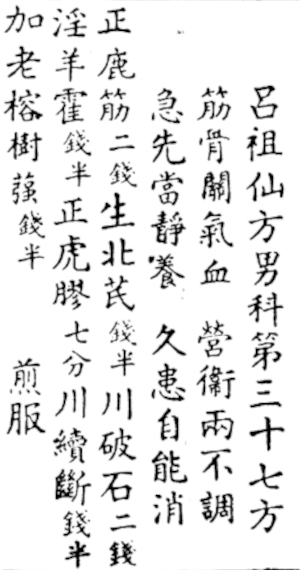 呂祖仙方男科第三十七方
筋骨關氣血　營衛兩不調
急先當靜養　久患自能消
正鹿筋二錢生北芪錢半川破石二錢
淫羊藿錢半正虎膠七分川續斷錢半
加老榕樹蔃錢半　煎服